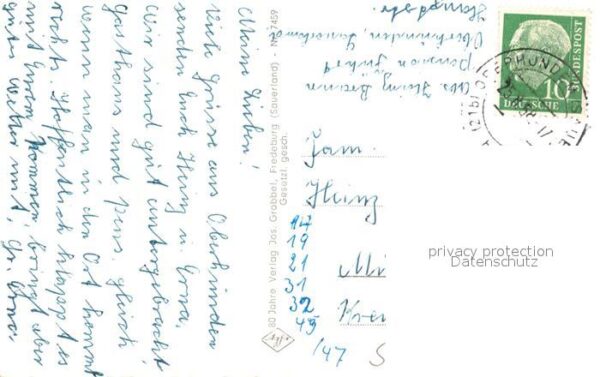 Meine Lieben!
Viele Grüsse aus Oberhunden
senden Euch Heinz u. Erna.
Wir sind gut untergebracht
Gasthaus und Pens. gleich
wenn man in den Ort kommt
rechts. Hoffentlich klappt es
mit Eurem Kommen, bringt aber
gutes Wetter mit, Gr. Erna.
80 Jahre Verlag Jos. Grobbel, Fredeburg (Sauerland) - Nr.
Gesetzl. gesch.
Agfa
Abs. Heinz
Pension
Oberhunden, Sauerland
Hauptstr.
Fam.
Heinz
Kre
14
19
21
31
32
49
/47
S
DEUTSCHE
BUNDESPOST
10
OBERHUNDE
privacy protection
Datenschutz